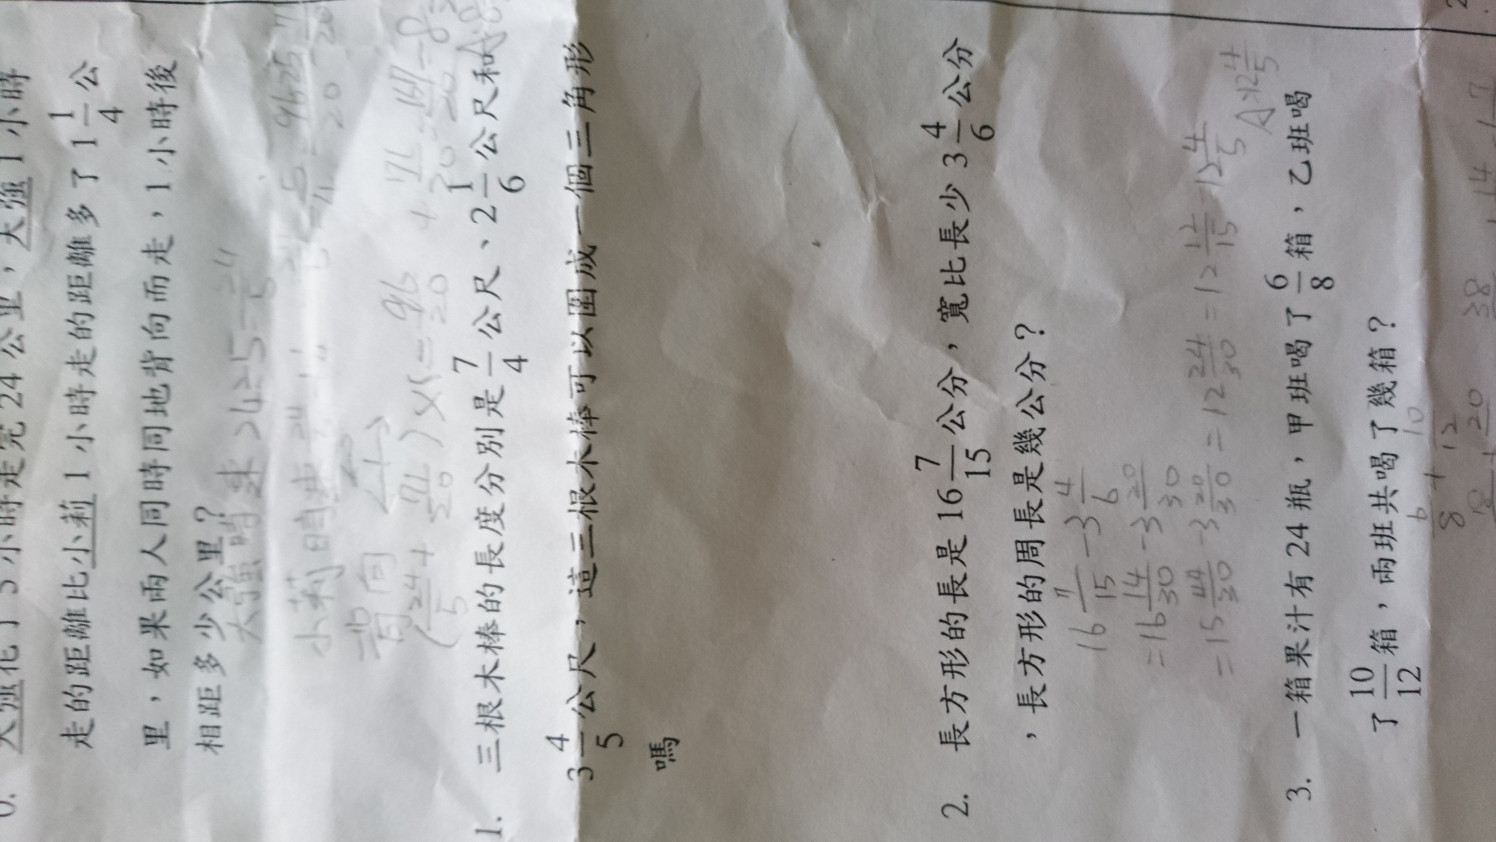 大強花了5小時走完24公里，大強1小時
走的距離比小莉1小時走的距離多了1 1/4公
里，如果兩人同時同地背向而走，1小時後
相距多少公里？
大強時速 24÷5=24/5
小莉時速
背向
(24/5+71/20)×1=96/20+71/20=167/20=8
1. 三根木棒的長度分別是7/4公尺、2 1/6公尺和
3 4/5公尺，這三根木棒可以圍成一個三角形
嗎
2. 長方形的長是16 7/15公分，寬比長少3 4/6公分
，長方形的周長是幾公分？
16 7/15-3 4/6
=16 14/30-3 20/30
=15 44/30-3 20/30=12 24/30=12 12/15=12 4/5
A:12 4/5
3. 一箱果汁有24瓶，甲班喝了6/8箱，乙班喝
了10/12箱，兩班共喝了幾箱？
6/8+10/12